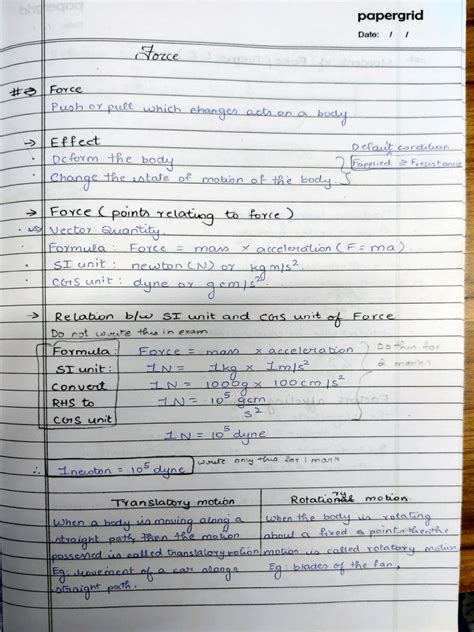 papergrid
Date: / /
Force
# → Force
Push or pull which changes acts on a body
→ Effect
Default condition
· Deform the body
Fapplied ≥ Fresistance
· Change the state of motion of the body.
→ Force (points relating to force)
· Vector Quantity.
· Formula: Force = mass × acceleration (F = ma).
· SI unit: newton (N) or kg m/s²
· CGS unit: dyne or g cm/s²
→ Relation b/w SI unit and CGS unit of Force
Do not write this in exam
Formula: Force = mass × acceleration
Do this for
2 marks
SI unit: 1N = 1kg × 1m/s²
Convert 1N = 1000g × 100cm/s²
RHS to 1N = 10⁵ gcm/s²
CGS unit
1N = 10⁵ dyne
∴ 1newton = 10⁵ dyne write only this for 1 mark
Translatory motion
When a body is moving along a
straight path then the motion
possessed is called translatory motion
Eg: Movement of a car along a
straight path.
Rotational motion
When the body is rotating
about a fixed point then the
motion is called rotatory motion
Eg: blades of the fan,